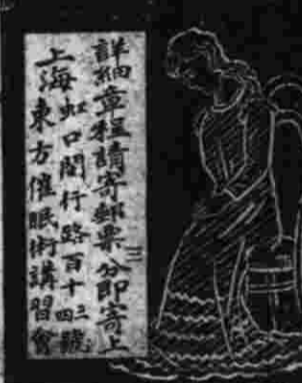 詳細章程請寄郵票三分即寄上
上海虹口閔行路百十三四號
東方催眠術講習會